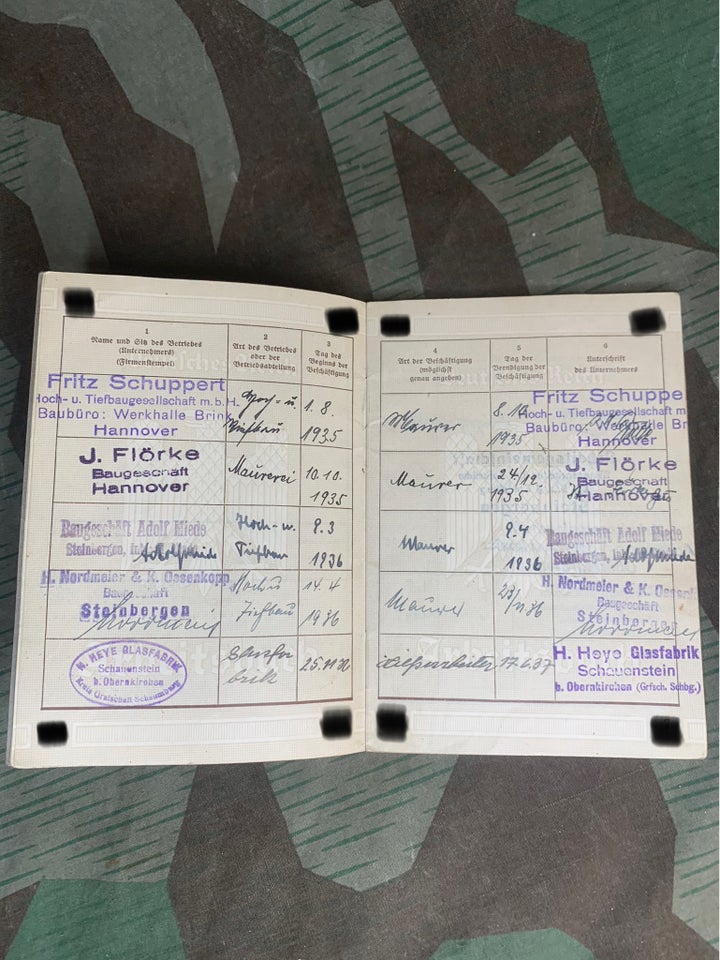 1
Name und Sitz des Betriebes
(Unternehmers)
(Firmenstempel)
2
Art des Betriebes
oder der
Betriebsabteilung
3
Tag des
Beginns der
Beschäftigung
Fritz Schuppert
Hoch- u. Tiefbaugesellschaft m.b.H.
Baubüro: Werkhalle Brink
Hannover
Hoch- u.
Tiefbau
1.8.
1935
J. Flörke
Baugeschäft
Hannover
Maurerei
10.10.
1935
Baugeschäft Adolf Miede
Steinbergen,
Hoch- u.
Tiefbau
9.3
1936
H. Nordmeier & K. Ossenkopp
Baugeschäft
Steinbergen
Hoch u
Tiefbau
14.4
1936
H. HEYE GLASFABRIK
Schauenstein
b. Obernkirchen
Kreis Grafschaft Schaumburg
25.11.36
4
Art der Beschäftigung
(möglichst
genau angeben)
5
Tag der
Beendigung der
Beschäftigung
6
Unterschrift
des Unternehmers
Maurer
8.10.
1935
Fritz Schuppe
Hoch- u. Tiefbaugesellschaft m
Baubüro: Br
Hannover
Maurer
24/12.
1935
J. Flörke
Baugeschäft
Hannover
Maurer
9.4
1936
Baugeschäft Adolf Miede
Steinbergen,
Maurer
23/11 36
H. Nordmeier & K. Ossen
Baugeschäft
Steinbergen
17.6.37
H. Heye Glasfabrik
Schauenstein
b. Obernkirchen (Grfsch. Schbg.)